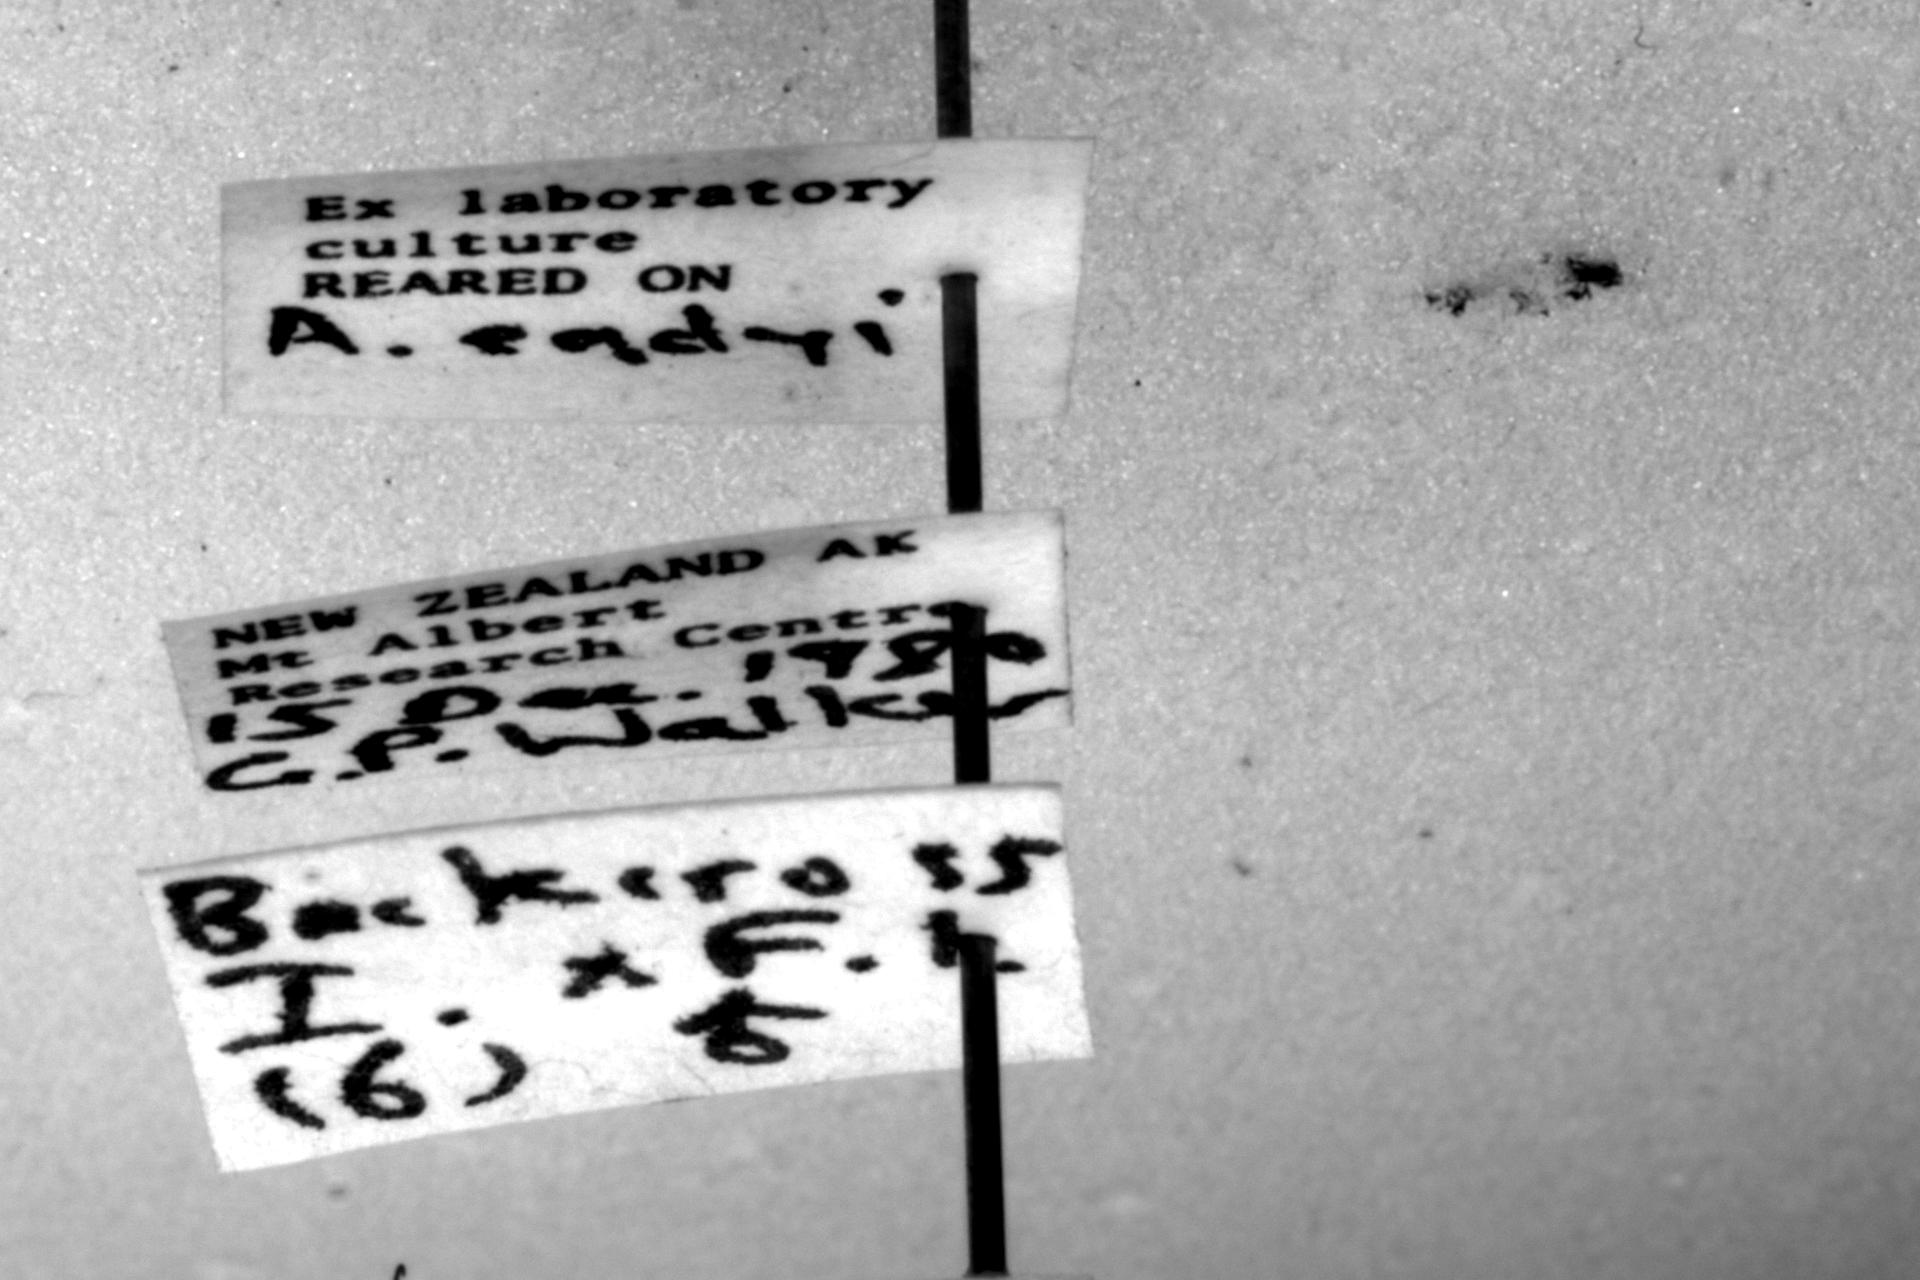 Ex laboratory
culture
REARED ON
A. eadyi
NEW ZEALAND AK
Mt Albert
Research Centre
15 Dec. 1980
G.P. Walker
Backcross
I. x F.
(6)